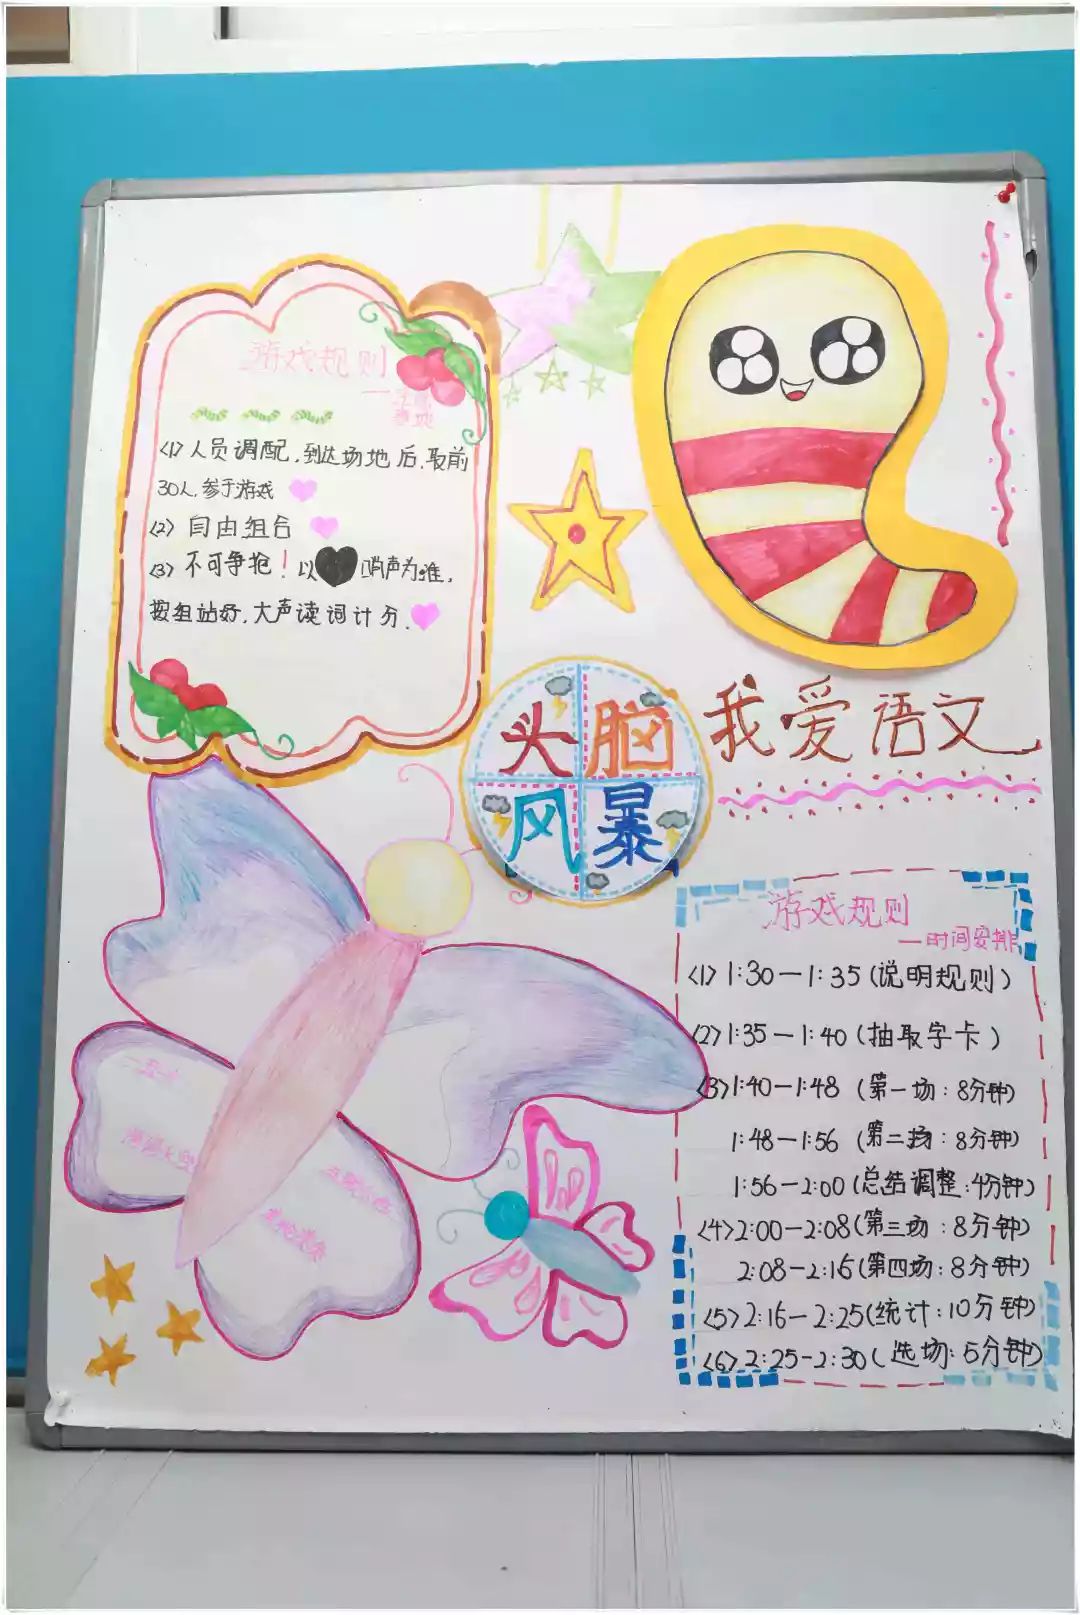 游戏规则
<1>人员调配.到达场地后.取前
30人.参于游戏
<2> 自由组合
<3> 不可争抢！以 哨声为准,
按组站好.大声读词计分.
头脑
风暴
我爱语文
游戏规则
—时间安排
<1>1:30—1:35(说明规则)
<2>1:35—1:40(抽取字卡)
<3>1:40—1:48 (第一场:8分钟)
1:48—1:56 (第二场:8分钟)
1:56—2:00(总结调整:4分钟)
<4>2:00—2:08(第三场:8分钟)
2:08—2:16(第四场:8分钟)
<5>2:16—2:25(统计:10分钟)
<6>2:25—2:30(选场:5分钟)